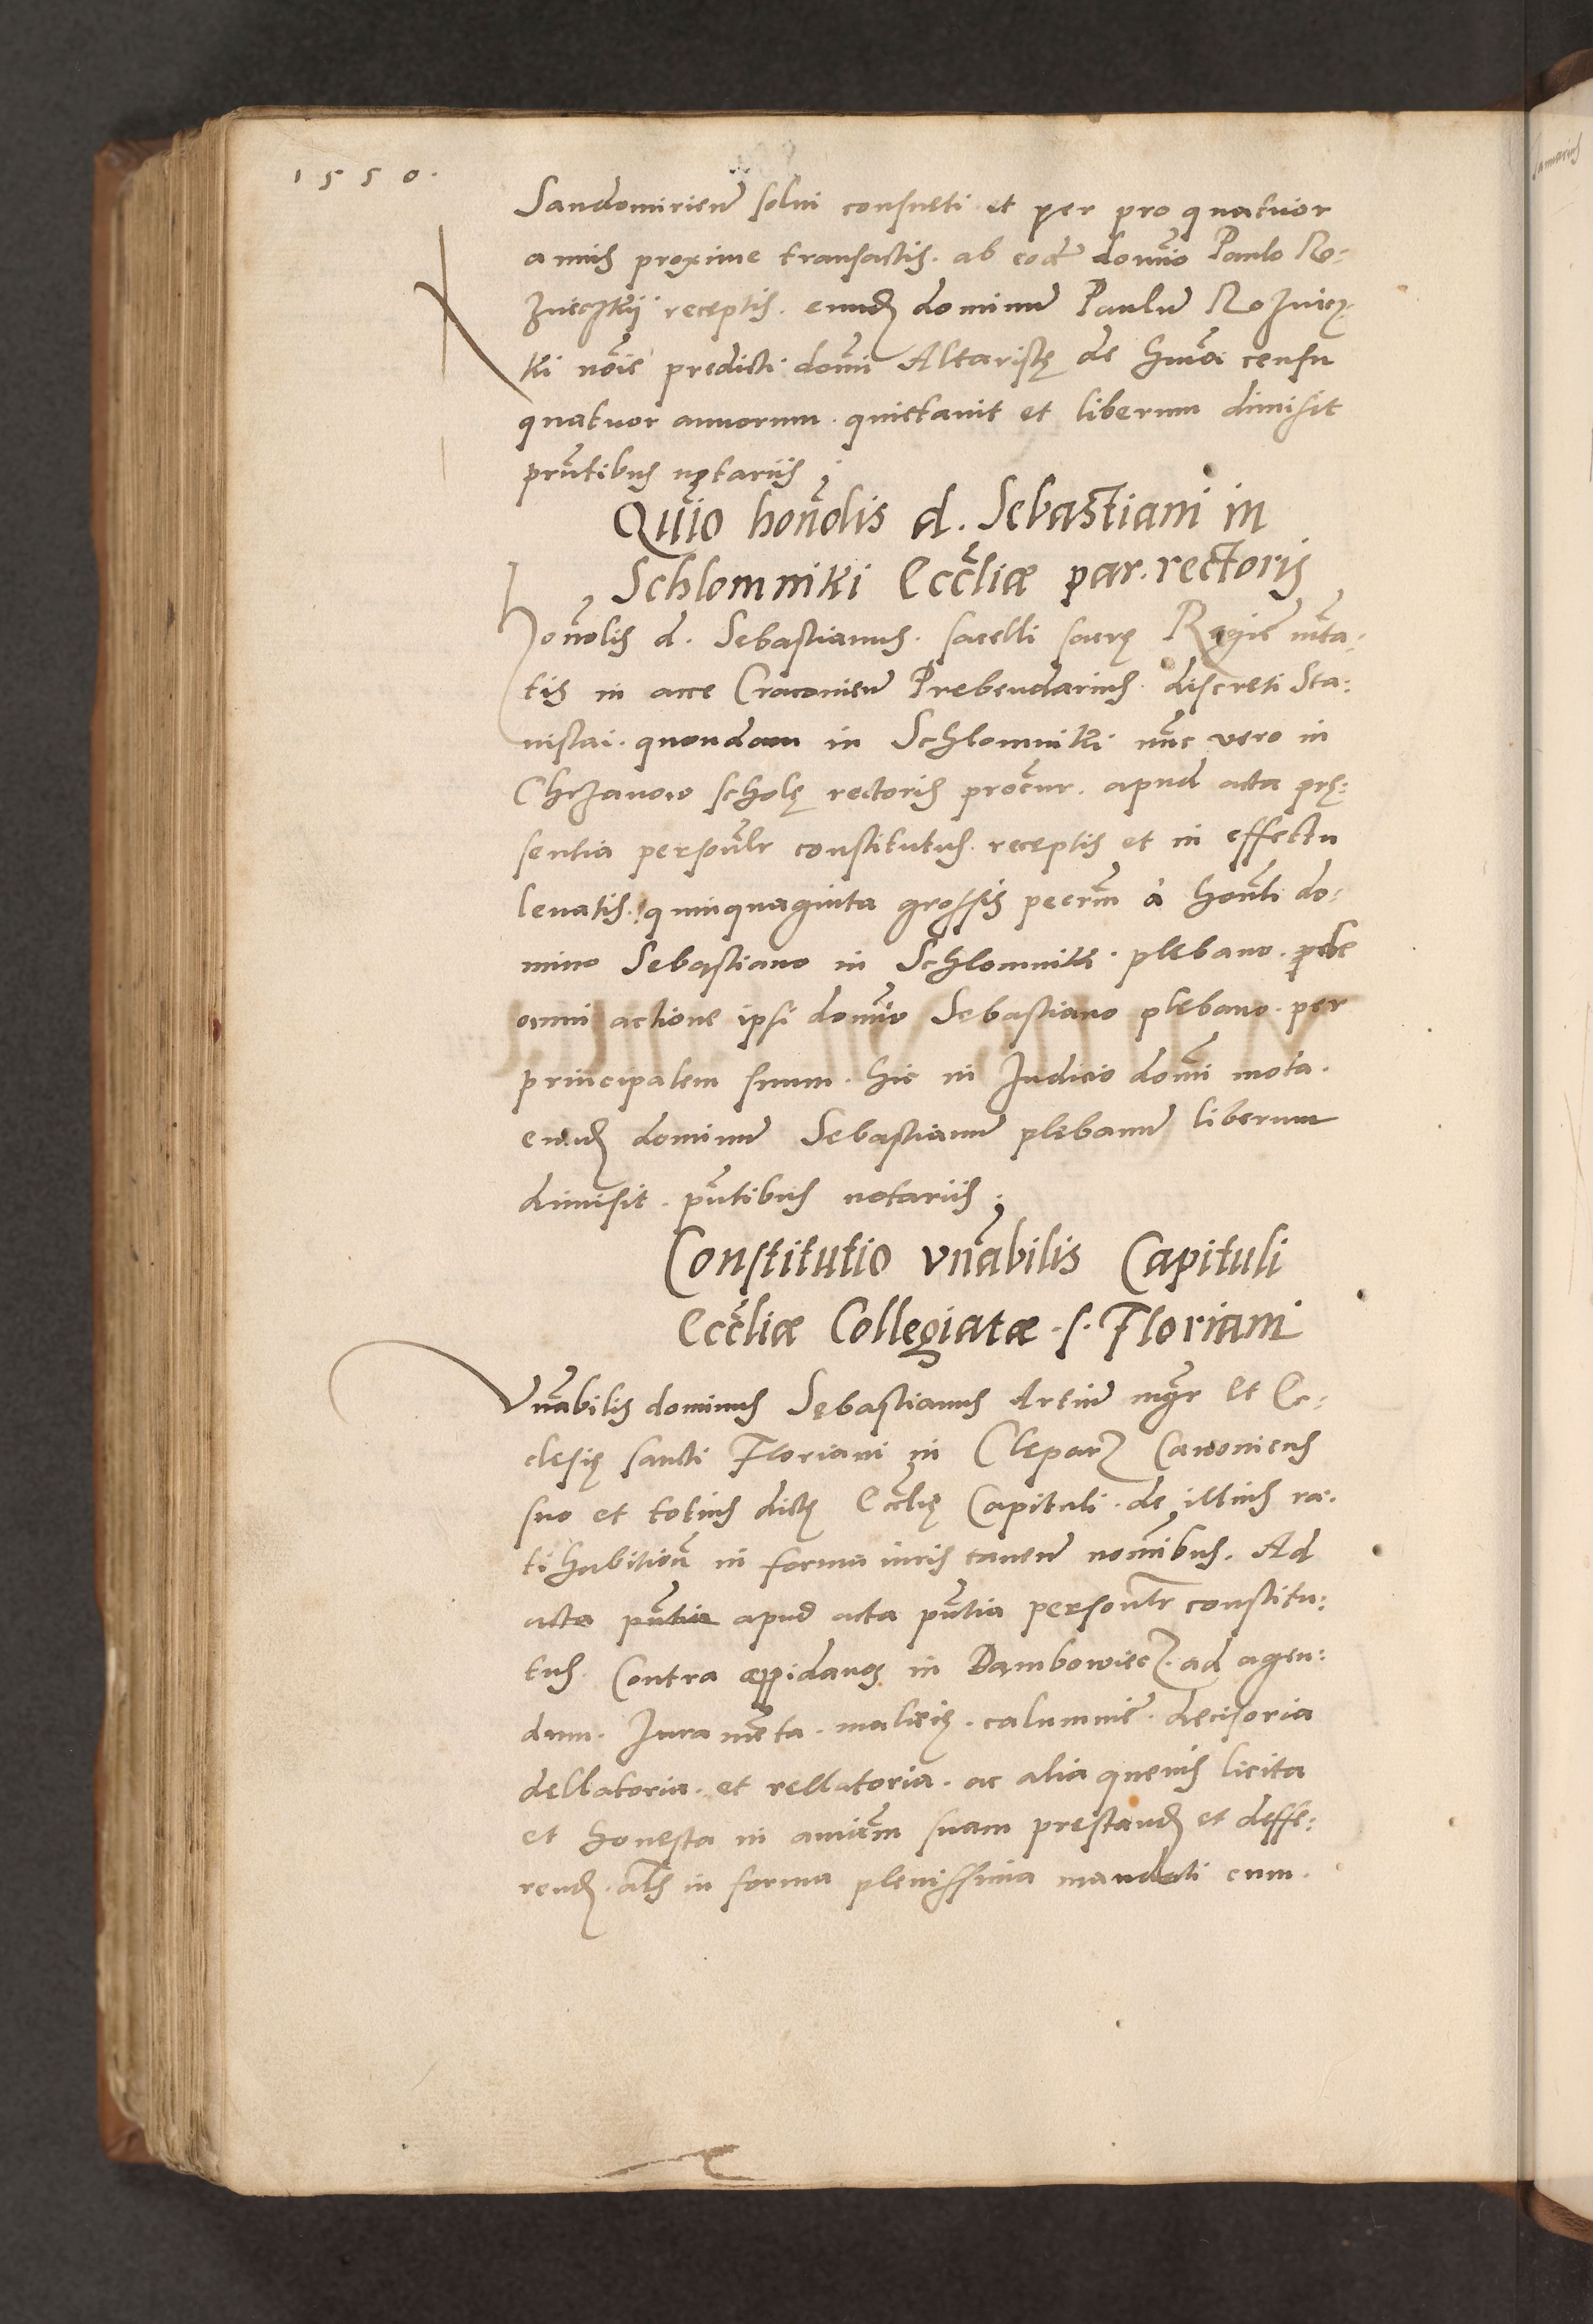 1550.
Sandomirien̄ solui consueti et per pro quatuor
annis proxime transactis. ab eod̄ domīo Paulo Ro:
znieczkij receptis. eundꝫ dominū Paulū Rozniecz
ki nōie predicti domī Altaristę de hm̄oi censu
quatuor annorum. quietauit et liberum dimisit
pn̄tibus notariis;
Quīio honōlis d. Sebastiani in
Schlomniki Eccl̄iæ par. rectoris
Honōlis d. Sebastianus. sacelli sacrę Regię mt̄a:
tis in arce Cracouien̄ Prebendarius. discreti Sta:
nislai. quondam in Schlomniki nūc vero in
Chrzanow scholę rectoris procur̄. apud acta prę:
sentia person̄lr constitutus. receptis et in effectu
leuatis. quinquaginta grossis pecum̄ à honōli do:
mino Sebastiano in Schlomniki. plebano. de
omni actione ipsi domīo Sebastiano plebano. per
principalem suum. hic in Judicio domī mota.
eundꝫ dominū Sebastianū plebanū liberum
dimisit. pn̄tibus notariis;
Constitutio vn̄abilis Capituli
Eccl̄iæ Collegiatæ. s. Floriani
Vn̄abilis dominus Sebastianus Artiū mgr̄ Et Ec:
clesię sancti Floriani in Cleparz Canonicus
suo et totius dictę Eccl̄ię Capituli. de illius ra:
ti habitiōn̄ in forma iuris cauen̄ nomībus. Ad
acta pn̄tia apud acta pn̄tia person̄lr constitu:
tus. Contra oppidanos in Dambowiecz. ad agen:
dum. Juramēta. malicię. calumnię. decisoria
dellatoria. et rellatoria. ac alia queuis licita
et honesta in aniām suam prestandꝫ et deffe:
rendꝫ. al̄s in forma plenissima mandati cum.